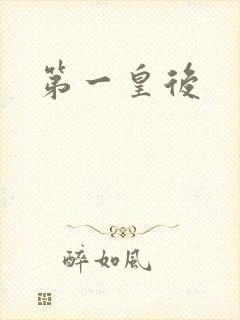 第一皇後
醉如風